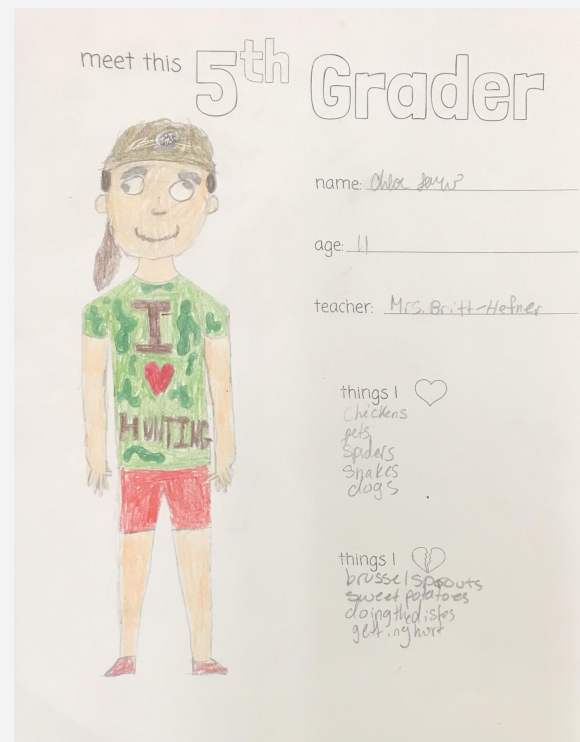 meet this 5th Grader
name: Chloe
age: 11
teacher: Mrs. Britt-Hefner
I
HUNTING
things I
chickens
pets
spiders
snakes
dogs
things I
brussel sprouts
sweet potatoes
doing the dishes
getting hurt